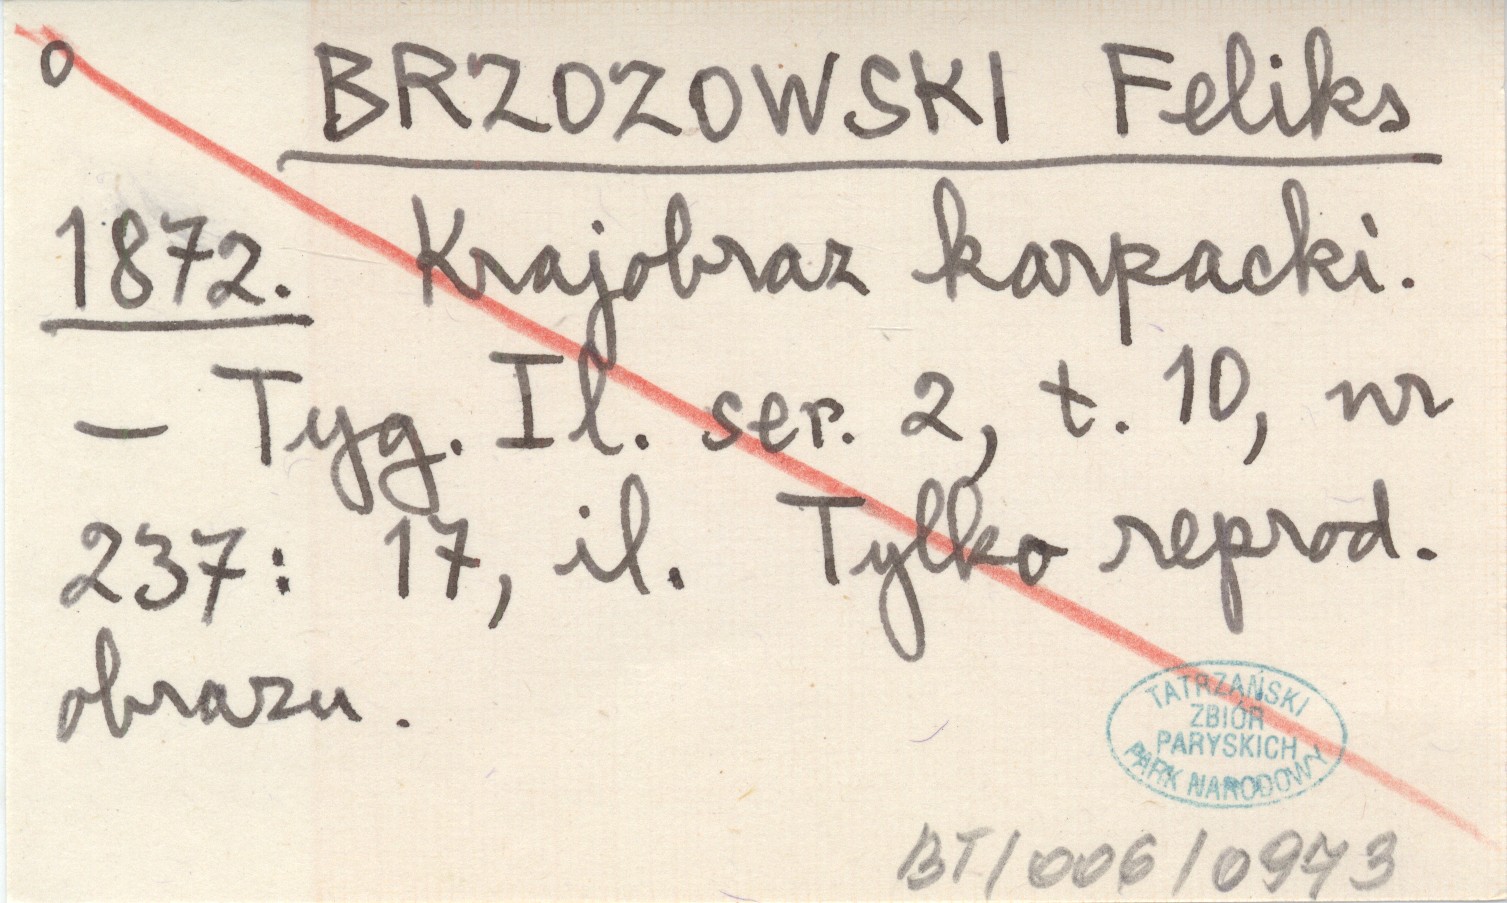 o BRZOZOWSKI Feliks
1872. Krajobraz karpacki.
— Tyg. Il. ser. 2, t. 10, nr
237: 17, il. Tylko reprod.
obrazu.
TATRZAŃSKI
ZBIÓR
PARYSKICH
PARK NARODOWY
BT/006/0973